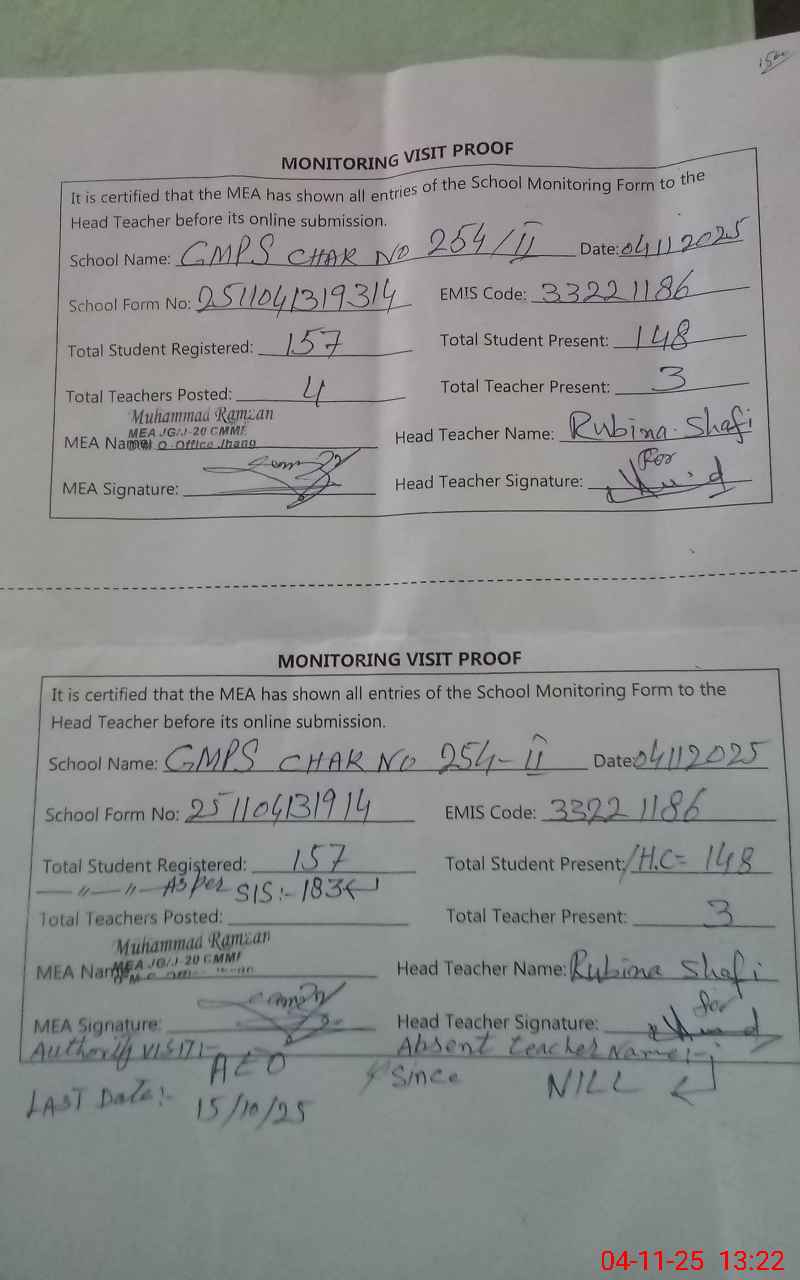 MONITORING VISIT PROOF
It is certified that the MEA has shown all entries of the School Monitoring Form to the
Head Teacher before its online submission.
School Name: GMPS CHAK NO 254/II Date: 04112025
School Form No: 2511041319314 EMIS Code: 33221186
Total Student Registered: 157 Total Student Present: 148
Total Teachers Posted: 4 Total Teacher Present: 3
Muhammad Ramzan
MEA JG/J-20 CMMF
MEA Name: Office Jhang Head Teacher Name: Rubina Shafi
for
MEA Signature: Head Teacher Signature:
MONITORING VISIT PROOF
It is certified that the MEA has shown all entries of the School Monitoring Form to the
Head Teacher before its online submission.
School Name: GMPS CHAK NO 254-II Date: 04112025
School Form No: 251104131914 EMIS Code: 33221186
Total Student Registered: 157 Total Student Present: /H.C= 148
—〃—〃— As per SIS:- 183
Total Teachers Posted: Total Teacher Present: 3
Muhammad Ramzan
MEA JG/J-20 CMMF
MEA Name: Head Teacher Name: Rubina Shafi
for
MEA Signature: Head Teacher Signature:
Authority VISIT:- AEO Absent teacher Name:-
Since NILL
LAST Date:- 15/10/25
04-11-25 13:22